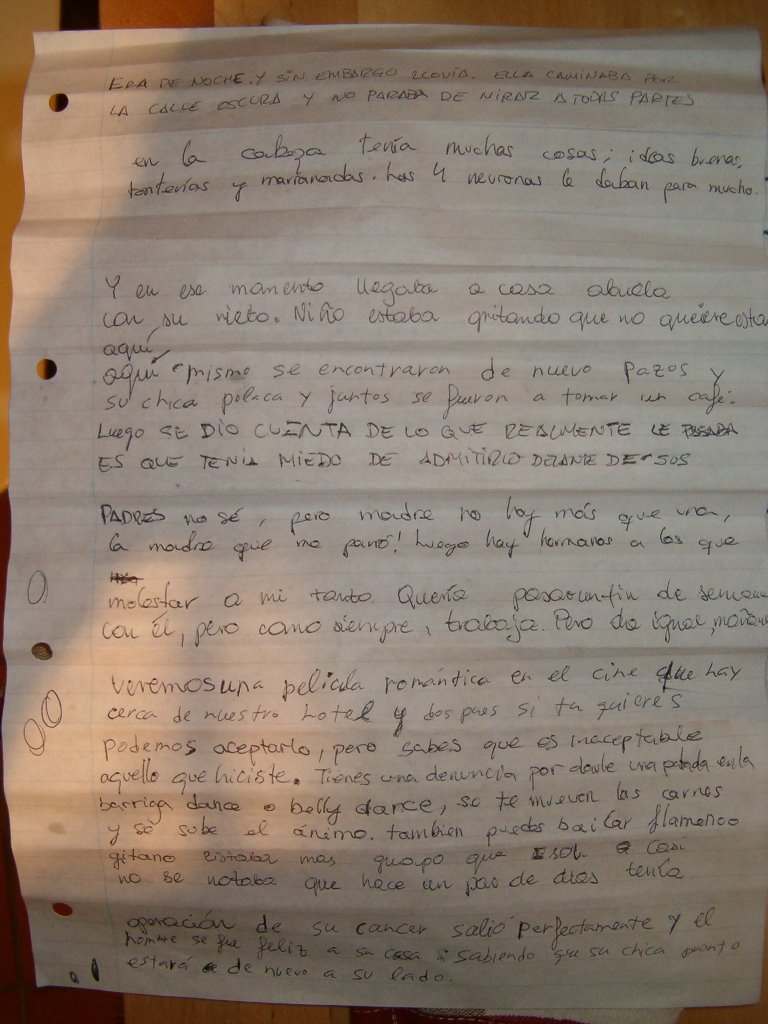 ERA DE NOCHE, Y SIN EMBARGO LLOVÍA. ELLA CAMINABA POR
LA CALLE OSCURA Y NO PARABA DE MIRAR A TODAS PARTES
en la cabeza tenía muchas cosas; ideas buenas,
tonterías y marianadas. Las 4 neuronas le daban para mucho.
Y en ese momento llegaba a casa abuela
con su nieto. Niño estaba gritando que no quiere estar
aquí
aquí mismo se encontraron de nuevo Pazos y
su chica polaca y juntos se fueron a tomar un café.
Luego SE DIO CUENTA DE LO QUE REALMENTE LE PASABA
ES QUE TENIA MIEDO DE ADMITIRLO DELANTE DE SUS
PADRES no sé, pero madre no hay más que una,
la madre que me parió! Luego hay hermanos a los que
molestar a mi tanto. Quería pasar un fin de semana
con él, pero como siempre, trabaja. Pero da igual, mañana
veremos una película romántica en el cine que hay
cerca de nuestro hotel y despues si ta quieres
podemos aceptarlo, pero sabes que es inaceptable
aquello que hiciste. Tienes una denuncia por darle una patada en la
barriga dance o belly dance, se te mueven las carnes
y se sube el ánimo. tambien puedes bailar flamenco
gitano estaba mas guapo que casi
no se notaba que hace un par de dias tenía
operación de su cancer salió perfectamente y el
hombre se fue feliz a su casa sabiendo que su chica pronto
estará de nuevo a su lado.